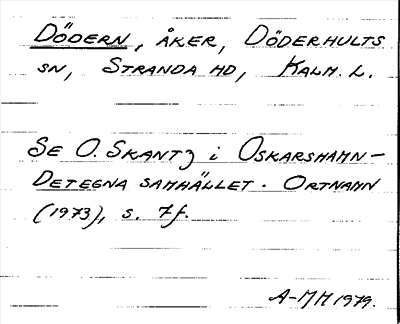 Dödern, åker, Döderhults
sn, Stranda hd, Kalm. l.
Se O. Skantz i Oskarshamn –
Det egna samhället. Ortnamn
(1973), s. 7f.
A-MM 1979.